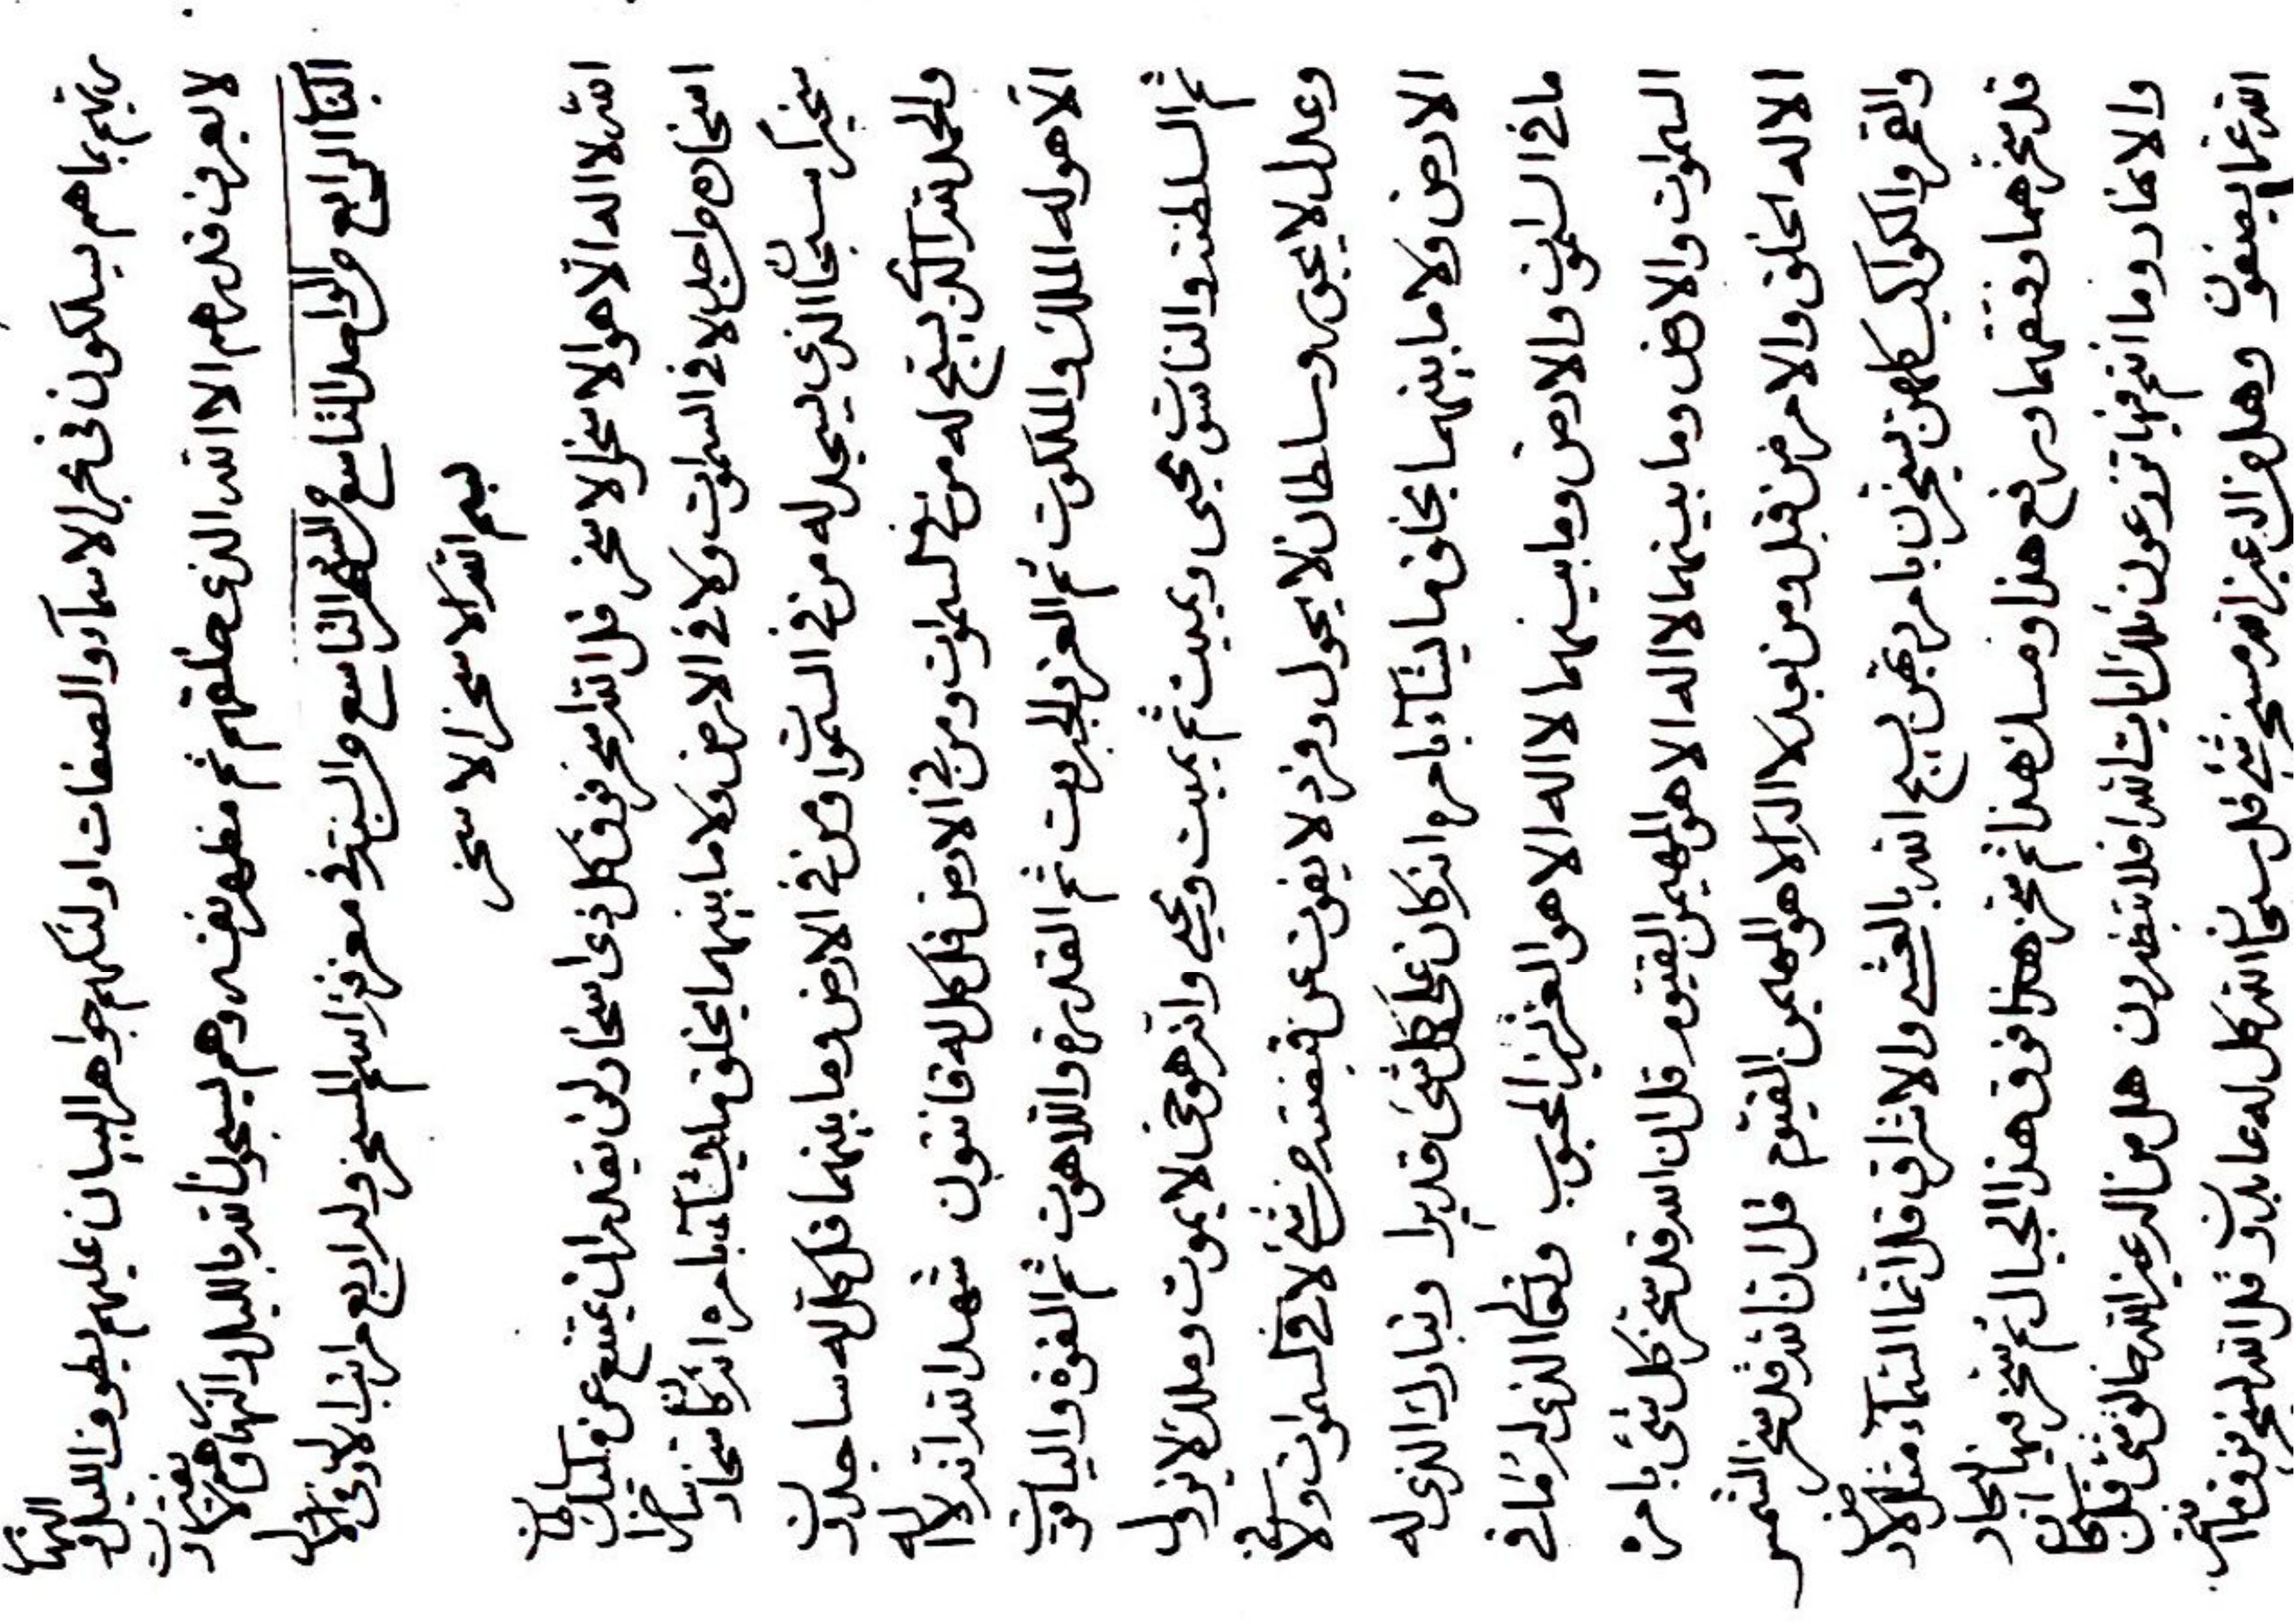 ربهم بما هم يسلكون فى بحر الاسمآء والصفات اولئكهم جواهر البيان عليهم يطوف الليل و النهار
لا يعرف قدرهم الا الله الذى خلقهم ثم مظهر نفسه وهم يسجون لله بالليل والنهار وهم لا يفترون
الباب الرابع من الواحد التاسع من الشهر التاسع من السنة فى معرفة اسم المسخر وله اربع مراتب الاول فى الاول
بسم الله الاسخر الاسخر
الله لا اله الا هو الاسخر الاسخر قل الله اسخر فوق كل ذى اسخار لن يقدر ان يمتنع عن مليك سلطان
اسخاره من احد لا فى السموات ولا فى الارض ولا ما بينهما يخلق ما يشآء بامره انه كان سخارا ساخرا
سخيرا سبحان الذى يسجد له من فى السموات ومن فى الارض وما بينهما قل كل له ساجدون
والحمد لله الذى يسبح له من فى السموات ومن فى الارض قل كل له قانتون شهد الله انه لا اله
الا هو له الملك والملكوت ثم العز والجبروت ثم القدرة واللاهوت ثم القوة والياقوت
ثم السلطنة والناسوت يحيى ويميت ثم يميت ويحيى وانه هو حى لا يموت وملك لا يزول
وعدل لا يجور وسلطان لا يحول وفرد لا يفوت عن قبضته من شئ لا فى السموات ولا فى
الارض ولا ما بينهما يخلق ما يشآء بامره انه كان على كل شئ قديرا وتبارك الذى له
ما فى السموات والارض وما بينهما لا اله الا هو العزيز المحبوب وتعالى الذى له ما فى
السموات والارض وما بينهما لا اله الا هو المهيمن القيوم قل ان الله قد سخر كل شئ بامره
الا له الخلق والامر من قبل ومن بعد لا اله الا هو المهيمن القيوم قل ان الله قد سخر الشمس
والقمر والكواكب كلهن يسخرن بامر ربهن يسبح الله بالعشى والاشراق قل انما السمآء مثل الارض
قد سخرهما وفتقهما ورفع هذا ومسك هذا ثم سخر هذا فوق هذا الجبال ثم سخر فيها البحار
والانهار وما انتم فيها تزرعون تلك ايات الله افلا تنظرون هل من اله غير الله خالق شئ قل سبحان
الله عما يصفون وهل من اله غير الله مسخر شئ قل سبحان الله كل له عابدون قل الله يسخر فوق ما